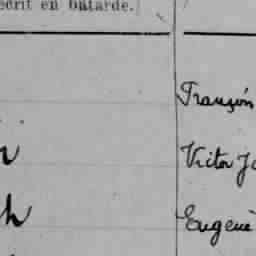 écrit en bâtarde.)
François
r Victor J
h Eugène